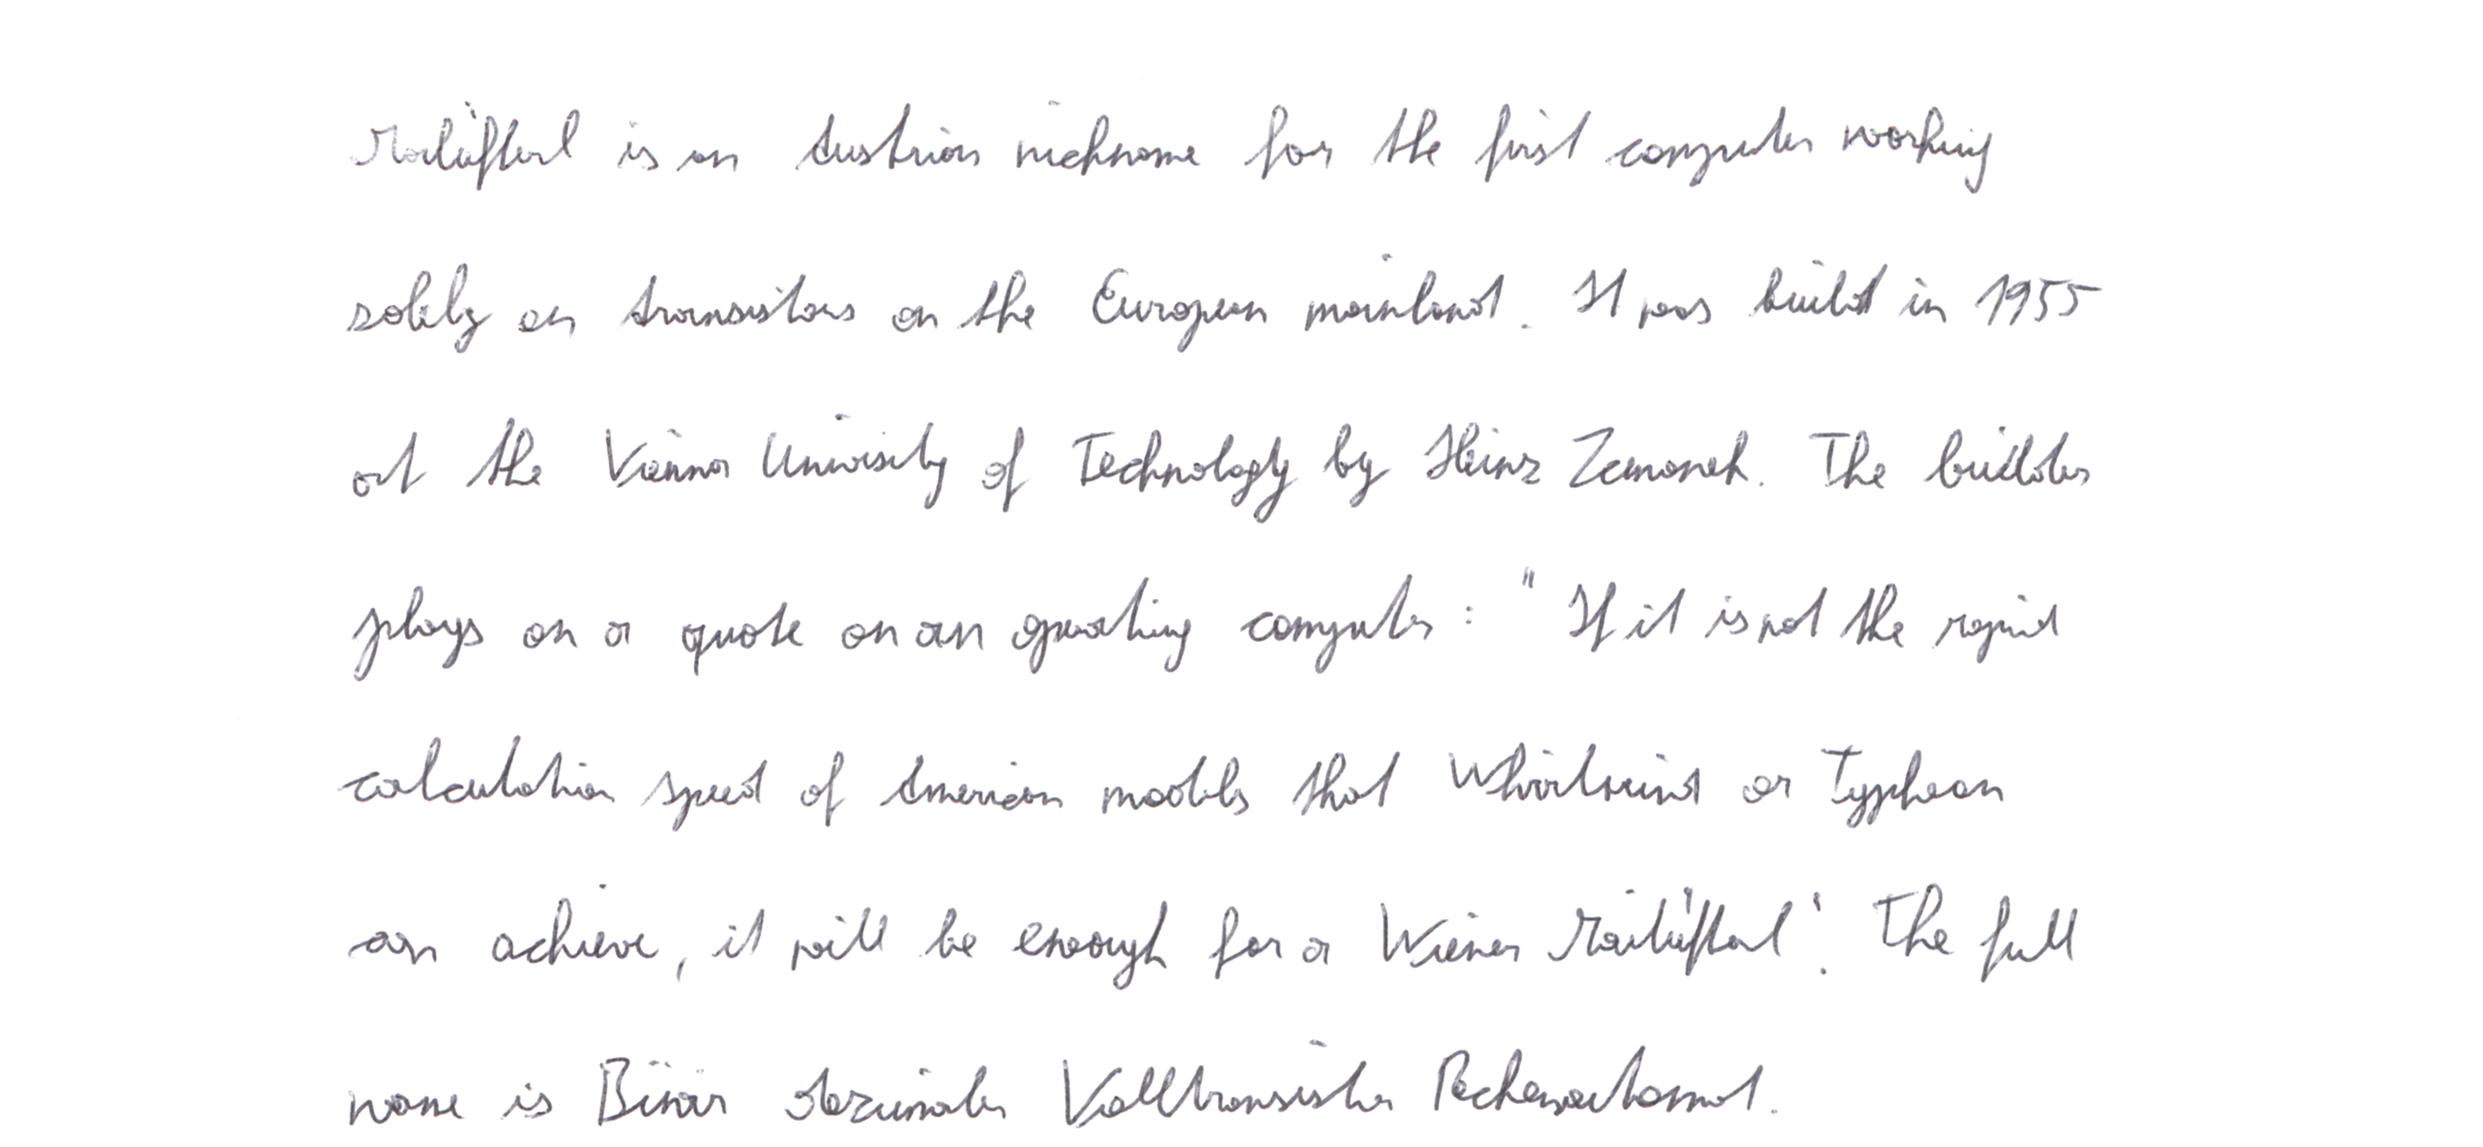 Mailüfterl is an Austrian nickname for the first computer working
solely on transistors on the European mainland. It was build in 1955
at the Vienna University of Technology by Heinz Zemanek. The builder
plays on a quote on an operating computer: "If it is not the rapid
calculation speed of American models that Whirlwind or Typhoon
can achieve, it will be enough for a Wiener Mailüfterl". The full
name is Binär dezimaler Volltransistor Rechenautomat.